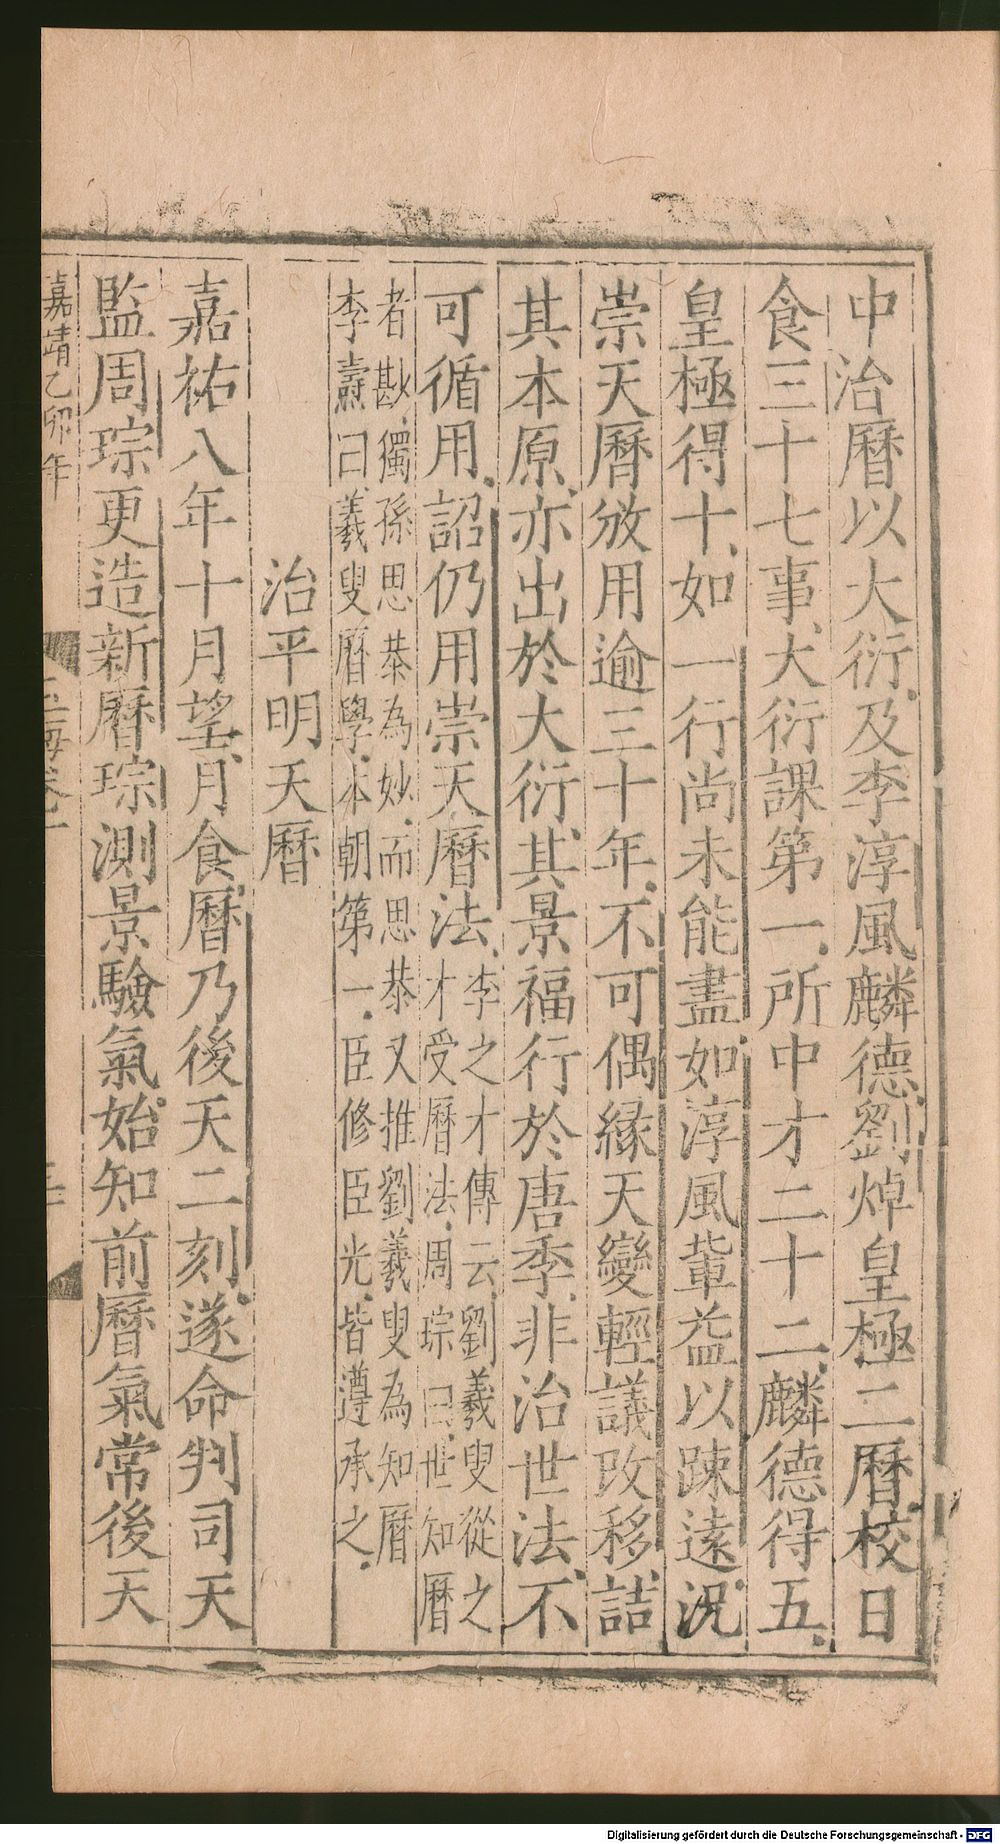 中治曆以大衍及李淳風麟德劉焯皇極二曆校日
食三十七事大衍課第一所中才二十二麟德得五
皇極得十如一行尚未能盡如淳風輩益以踈遠況
崇天曆攽用逾三十年不可偶緣天變輕議攺移詰
其本原亦出於大衍其景福行於唐季非治世法不
可循用詔仍用崇天曆法
李之才傳云劉羲叟從之
才受曆法周琮曰世知曆
者尠獨孫思恭為妙而思恭又推劉羲叟為知曆
李燾曰羲叟曆學本朝第一臣修臣光皆遵承之
治平明天曆
嘉祐八年十月望月食曆乃後天二刻遂命判司天
監周琮更造新曆琮測景驗氣始知前曆氣常後天
嘉靖乙卯年
Digitalisierung gefördert durch die Deutsche Forschungsgemeinschaft - DFG